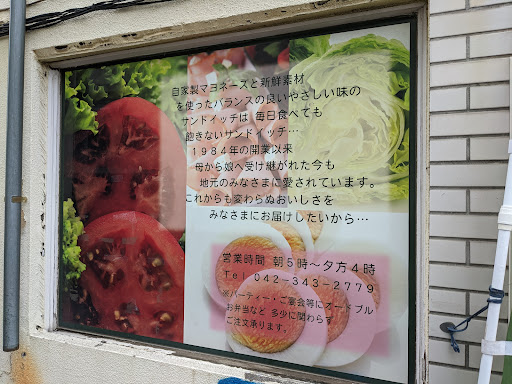 自家製マヨネーズと新鮮素材
を使ったバランスの良いやさしい味の
サンドイッチは 毎日食べても
飽きないサンドイッチ…
1984年の開業以来
母から娘へ受け継がれた今も
地元のみなさまに愛されています。
これからも変わらぬおいしさを
みなさまにお届けしたいから…
営業時間 朝5時〜夕方4時
Tel 042-343-2779
※パーティー・ご宴会等にオードブル
お弁当など 多少に関わらず
ご注文承ります。